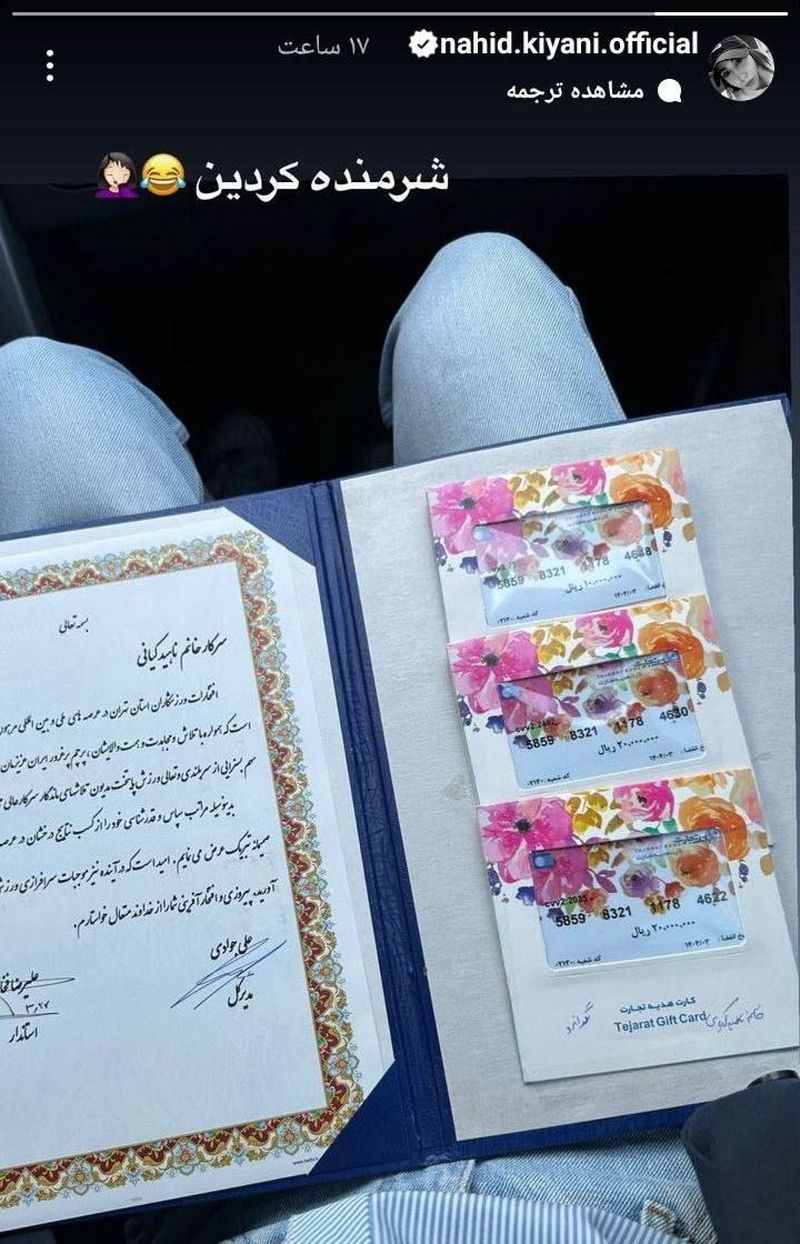 nahid.kiyani.official ۱۷ ساعت
مشاهده ترجمه
شرمنده کردین 😂🤦🏻‍♀️
بسمه تعالی
سرکار خانم ناهید کیانی
افتخارات ورزشکاران استان تهران در عرصه های ملی و بین المللی مرهون
است که همواره با تلاش و مجاهدت و همت والایشان، پرچم پرغرور ایران عزیزمان
سهم بسزایی از سربلندی و تعالی ورزش پایتخت مدیون تلاشهای ماندگار سرکار عالی
بدینوسیله مراتب سپاس و قدرشناسی خود را از کسب نتایج درخشان در عرصه
صمیمانه تبریک عرض می نمایم. امید است که در آینده نیز موجبات سرافرازی ورزش
آورید. پیروزی و افتخار آفرینی شما را از خداوند متعال خواستارم.
علی جوادی
مدیرکل
علیرضا
۳،۲۷
استاندار
5859 8321 1178 4638
۱۰,۰۰۰,۰۰۰ ریال
۱۴۰۴/۰۳
کد شعبه: ۰۲۱۳۰
5859 8321 1178 4630
۲۰,۰۰۰,۰۰۰ ریال
۱۴۰۴/۰۳
کد شعبه: ۰۲۱۳۰
5859 8321 1178 4622
۲۰,۰۰۰,۰۰۰ ریال
۱۴۰۴/۰۳
کد شعبه: ۰۲۱۳۰
کارت هدیه تجارت
Tejarat Gift Card